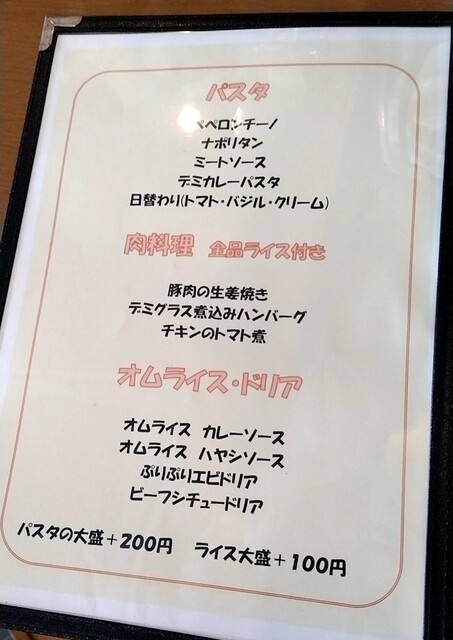 パスタ
ペペロンチーノ
ナポリタン
ミートソース
デミカレーパスタ
日替わり(トマト・バジル・クリーム)
肉料理 全品ライス付き
豚肉の生姜焼き
デミグラス煮込みハンバーグ
チキンのトマト煮
オムライス・ドリア
オムライス カレーソース
オムライス ハヤシソース
ぷりぷりエビドリア
ビーフシチュードリア
パスタの大盛+200円 ライス大盛+100円